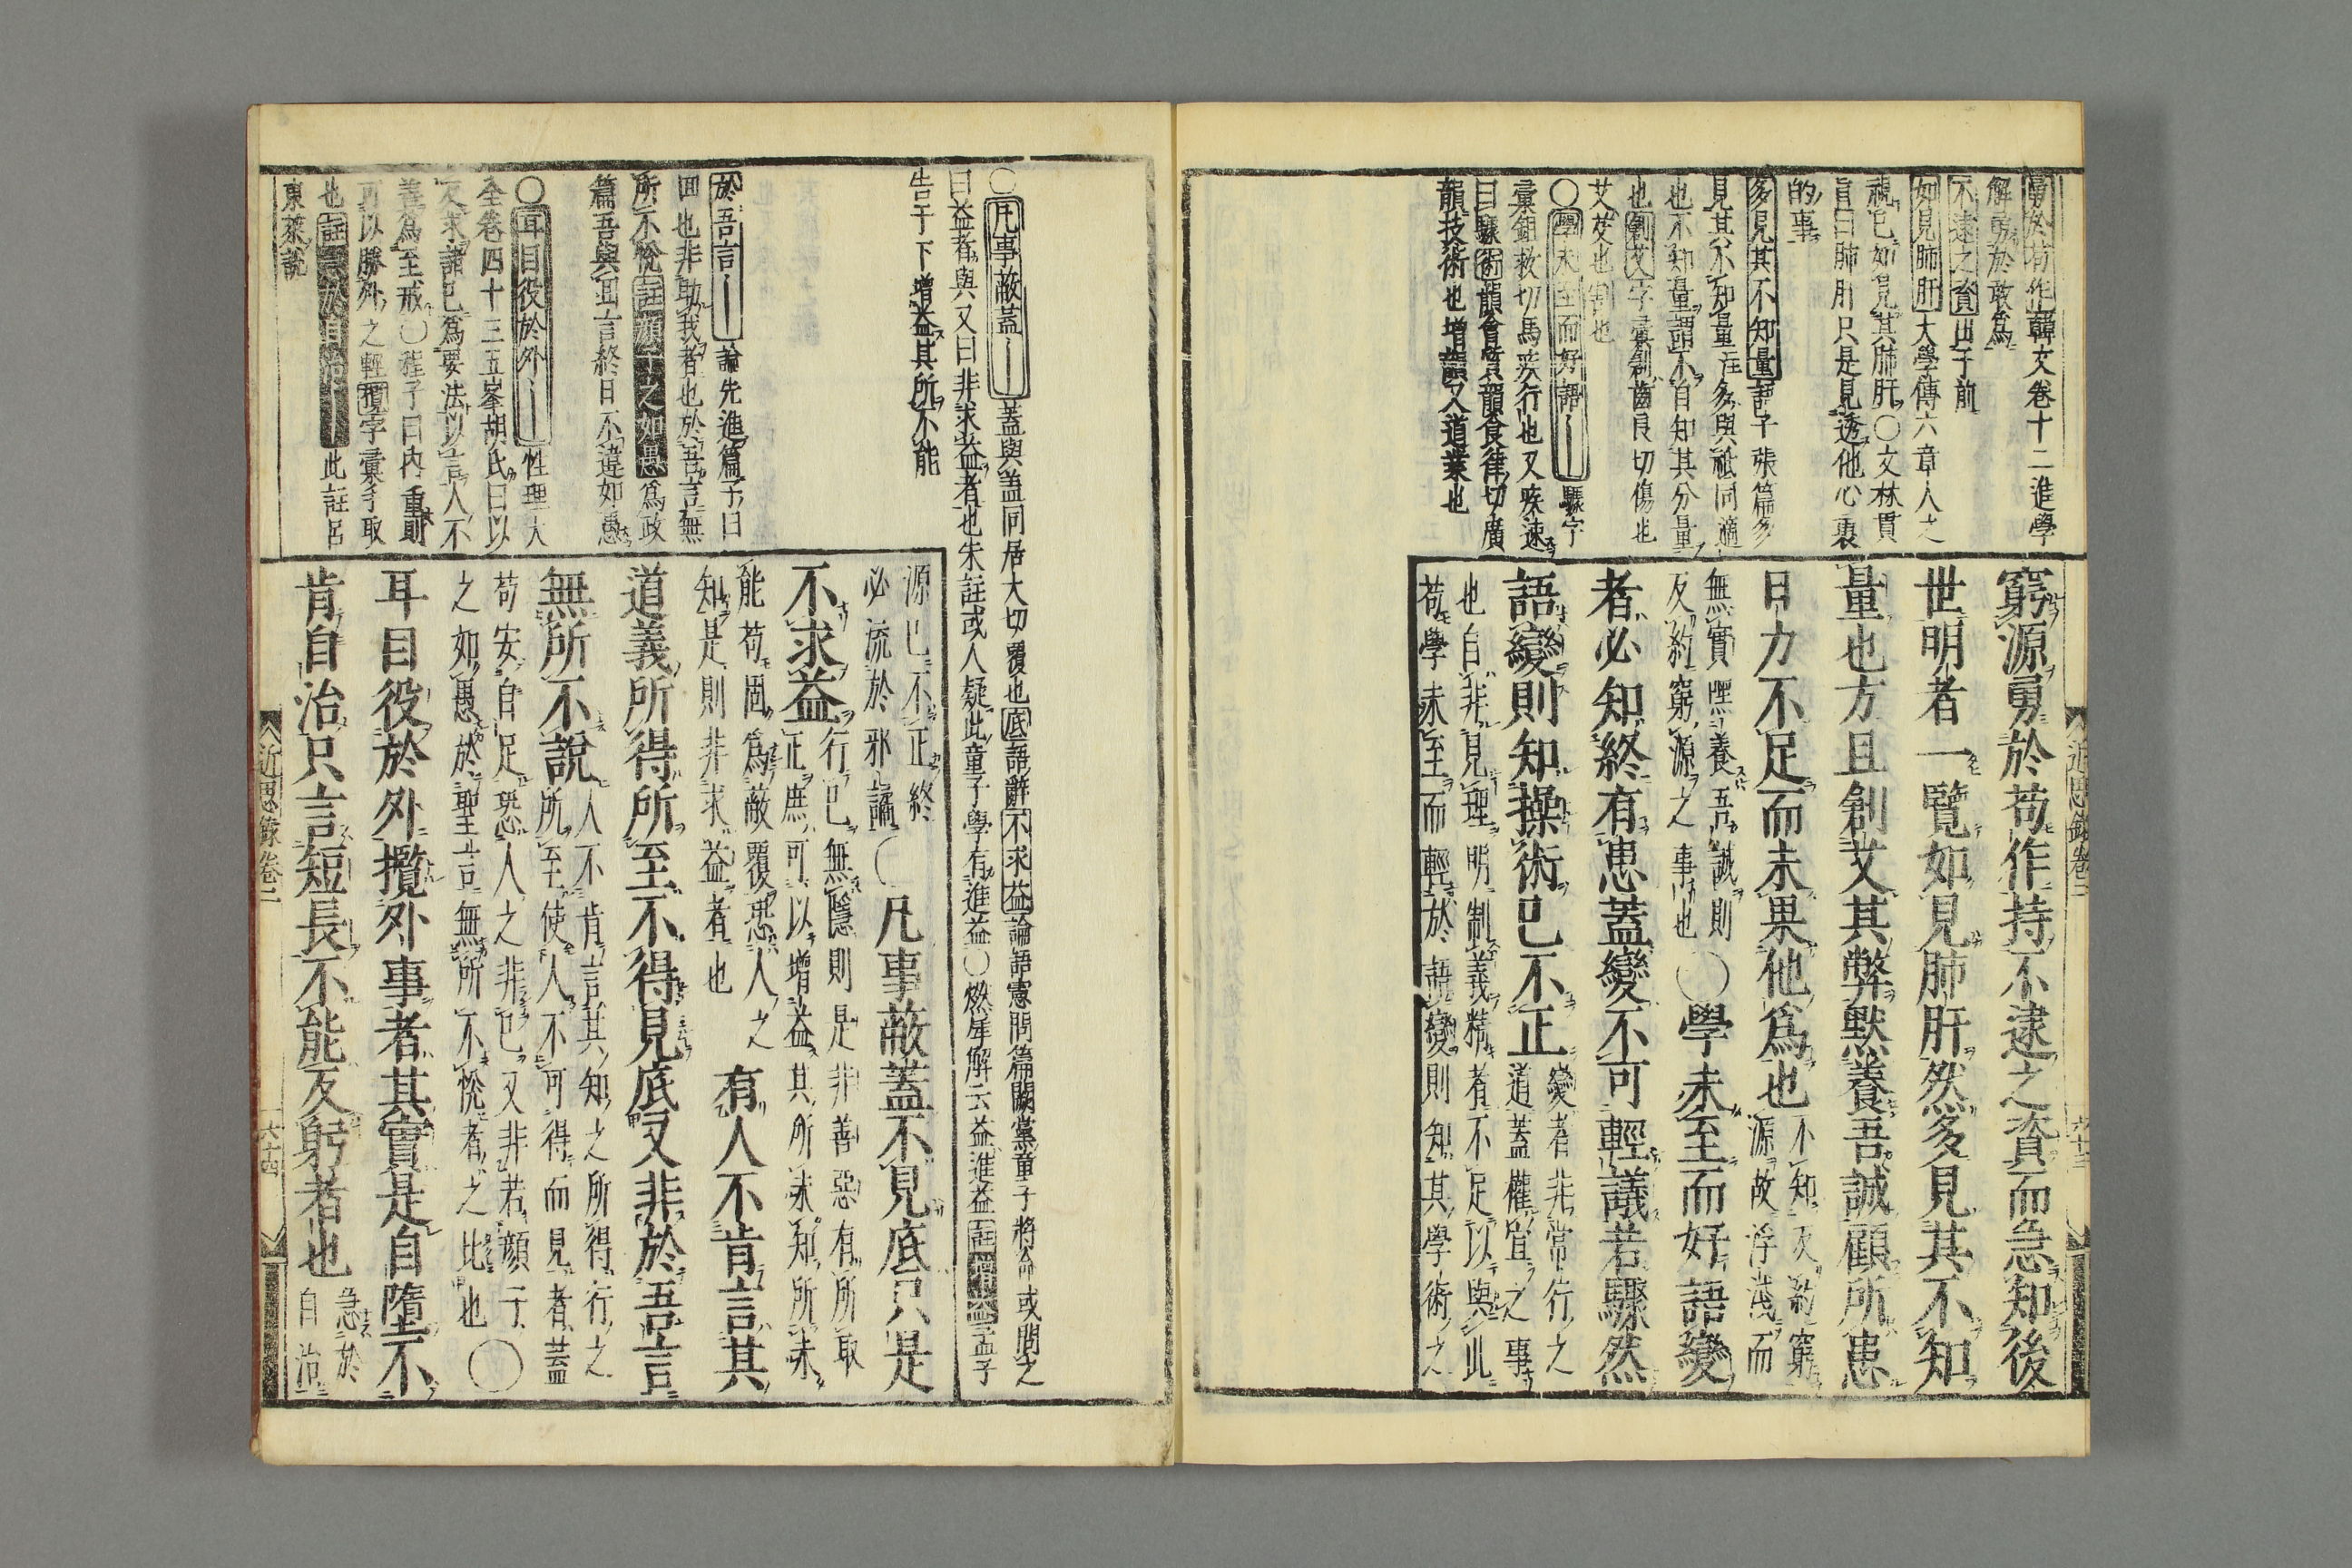 勇於苟作韓文卷十二進學
解勇於敢爲
不逮之資出于前
如見肺肝大學傳六章人之
視己如見其肺肝○文林貫
旨曰肺肝只是見透他心裏
的事
多見其不知量語子張篇多
見其不知量註多與祗同適
也不知量謂不自知其分量
也創艾字彙創齒良切傷也
艾芟也
○學未至而好語驟字
彙鉏救切馬疾行也又疾速
曰驟術韻會質韻食律切廣
韻技術也增韻又道業也
窮源勇於苟作持不逮之資而急知後
世明者一覽如見肺肝然多見其不知
量也方且創艾其弊默養吾誠顧所患
日力不足而未果他爲也不知反約窮
源故浮淺而
無實嘿養吾誠則
反約窮源之事也○學未至而好語變
者必知終有患蓋變不可輕議若驟然
語變則知操術已不正變者非常行之
道蓋權宜之事
也自非見理明制義精者不足以與此
苟學未至而輕於語變則知其學術之
近思錄卷二
六十三
○凡事蔽蓋蓋與盖同居大切覆也底語辭不求益論語憲問篇闕黨童子將命或問之
曰益者與又曰非求益者也朱註或人疑此童子學有進益○燃犀解云益進益註增益孟子
告子下增益其所不能
於吾言論先進篇子曰
回也非助我者也於吾言無
所不悅註顏子之如愚爲政
篇吾與回言終日不違如愚
○耳目役於外性理大
全卷四十三五峯胡氏曰以
反求諸己爲要法以言人不
善爲至戒○程子曰內重則
可以勝外之輕攬字彙手取
也註急於自治此註呂
東萊說
源已不正終
必流於邪譎○凡事蔽蓋不見底只是
不求益行已無隱則是非善惡有所取
正庶可以增益其所未知所未
能苟固爲蔽覆恐人之
知是則非求益者也有人不肯言其
道義所得所至不得見底又非於吾言
無所不說人不肯言其知之所得行之
所至使人不可得而見者蓋
苟安自足恐人之非已又非若顏子
之如愚於聖言無所不悅者之比也○
耳目役於外攬外事者其實是自墮不
肯自治只言短長不能反躬者也急於
自治
近思錄卷二
六十四